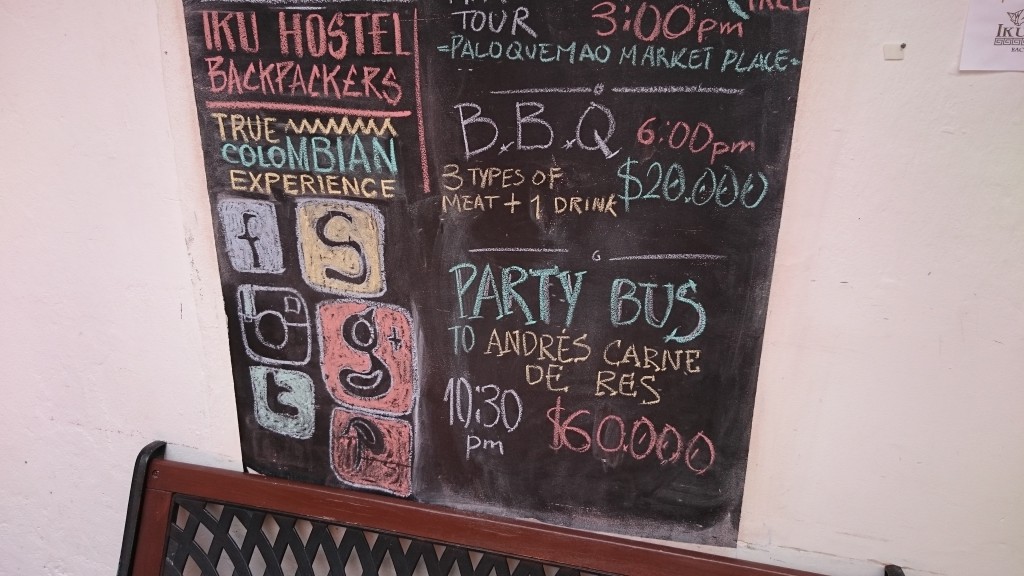 IKU HOSTEL
BACKPACKERS
TRUE
COLOMBIAN
EXPERIENCE
f
S
g+
t
P
TOUR 3:00pm
=PALOQUEMAO MARKET PLACE=
B.B.Q 6:00pm
3 TYPES OF
MEAT + 1 DRINK $20.000
PARTY BUS
TO ANDRÉS CARNE
DE RES
10:30
pm
$60.000
IKU